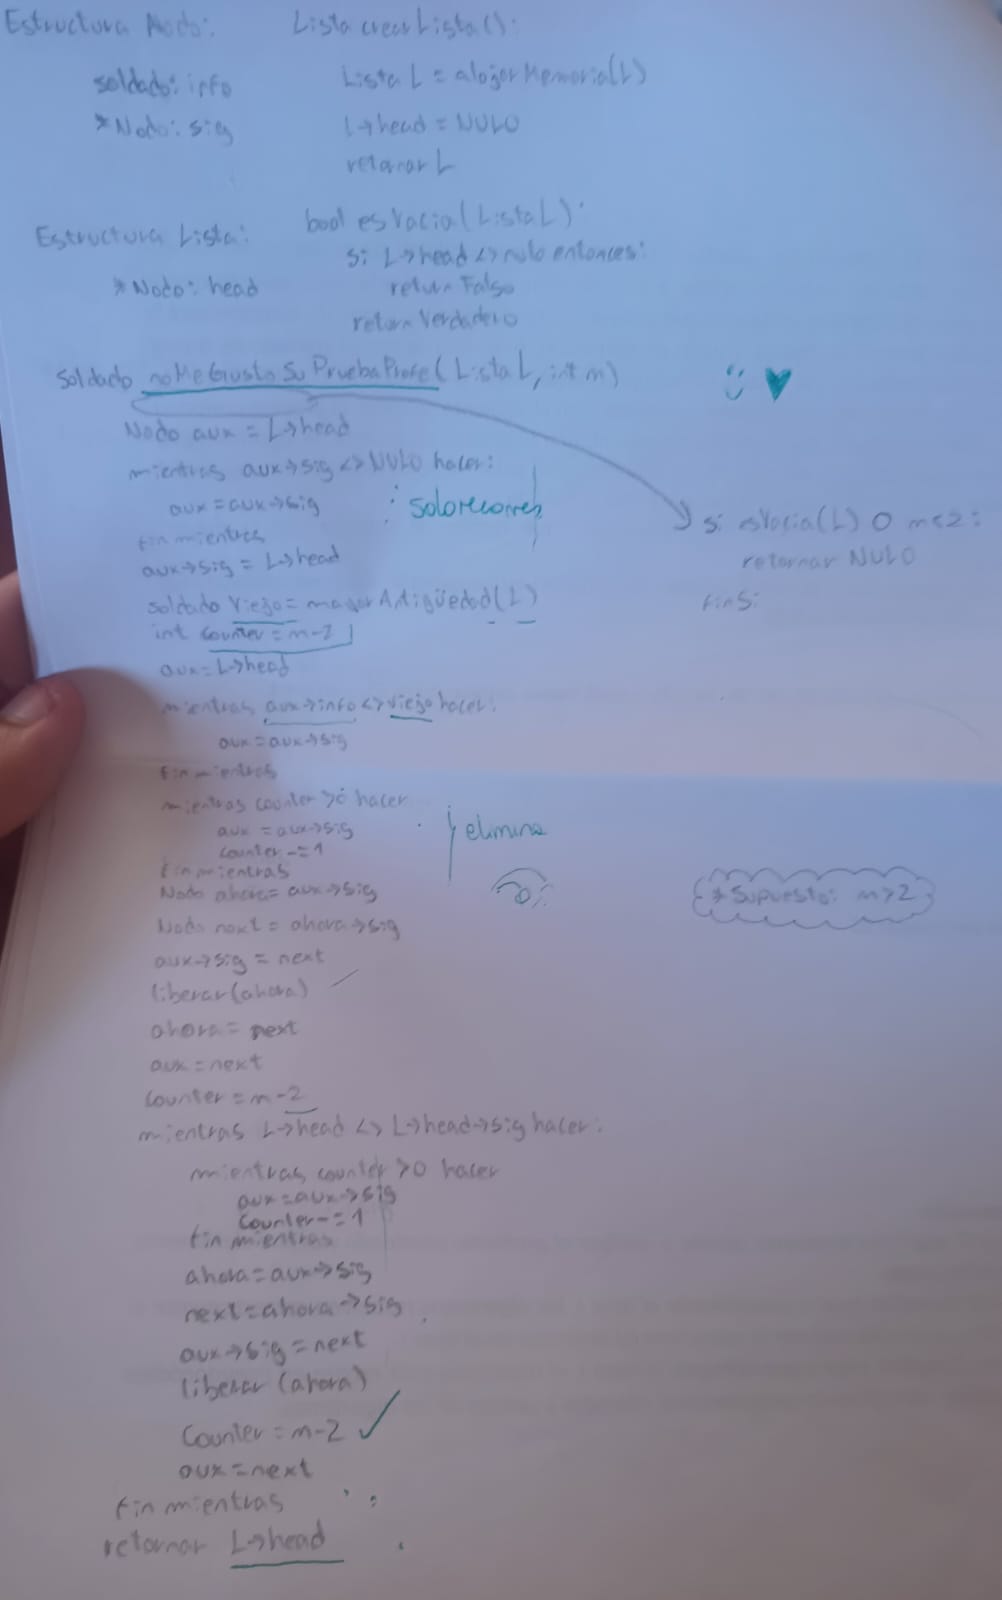 Estructura Nodo:
soldado: info
*Nodo: sig
Lista crearLista():
Lista L = alojarMemoria(L)
L->head = NULO
retornar L
Estructura Lista:
*Nodo: head
bool esVacia(Lista L):
si L->head <> nulo entonces:
return Falso
return Verdadero
Soldado noMeGustoSuPruebaProfe(Lista L, int m)
Nodo aux = L->head
mientras aux->sig <> NULO hacer:
aux = aux->sig
fin mientras
: solo recorres
aux->sig = L->head
si esVacia(L) O m<2:
retornar NULO
finSi
soldado viejo = mayorAntigüedad(L)
int counter = m-2
aux = L->head
mientras aux->info <> viejo hacer:
aux = aux->sig
fin mientras
mientras counter >0 hacer
aux = aux->sig
counter -= 1
fin mientras
elimina
Nodo ahora = aux->sig
*Supuesto: m>2
Nodo next = ahora->sig
aux->sig = next
liberar(ahora)
ahora = next
aux = next
counter = m-2
mientras L->head <> L->head->sig hacer:
mientras counter >0 hacer
aux = aux->sig
counter -= 1
fin mientras
ahora = aux->sig
next = ahora->sig
aux->sig = next
liberar (ahora)
counter = m-2
aux = next
fin mientras
retornar L->head